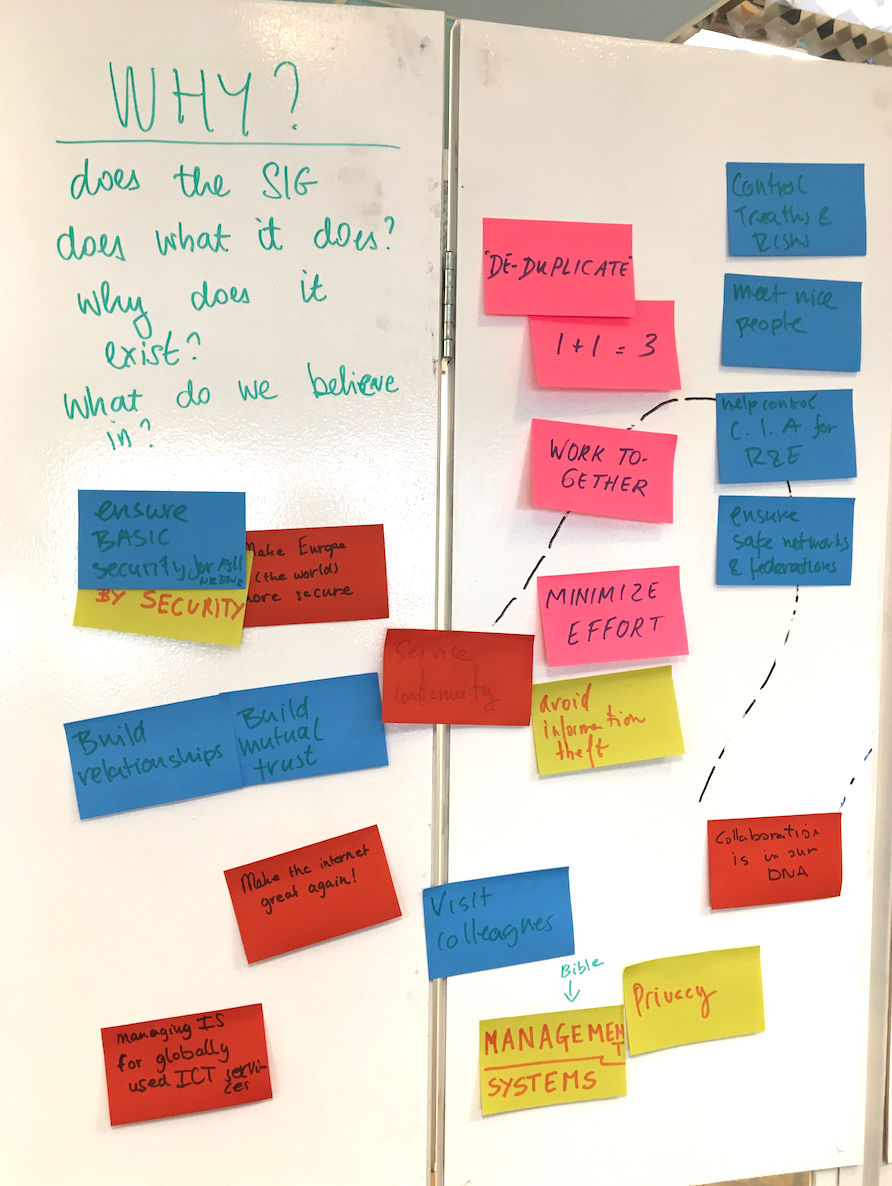 WHY?
does the SIG
does what it does?
Why does it
exist?
What do we believe
in?
ensure
BASIC
security for All
NRENs
BY SECURITY
Make Europe
(the world)
more secure
Build
relationships
Build
mutual
trust
Make the internet
great again!
managing IS
for globally
used ICT servi-
ces
Service
continuity
"DE-DUPLICATE"
1 + 1 = 3
WORK TO-
GETHER
MINIMIZE
EFFORT
avoid
information
theft
Control
Treaths &
Risks
meet nice
people
help control
C. I. A for
R&E
ensure
safe networks
& federations
Collaboration
is in our
DNA
Visit
colleagues
Bible
MANAGEMENT
SYSTEMS
Privacy